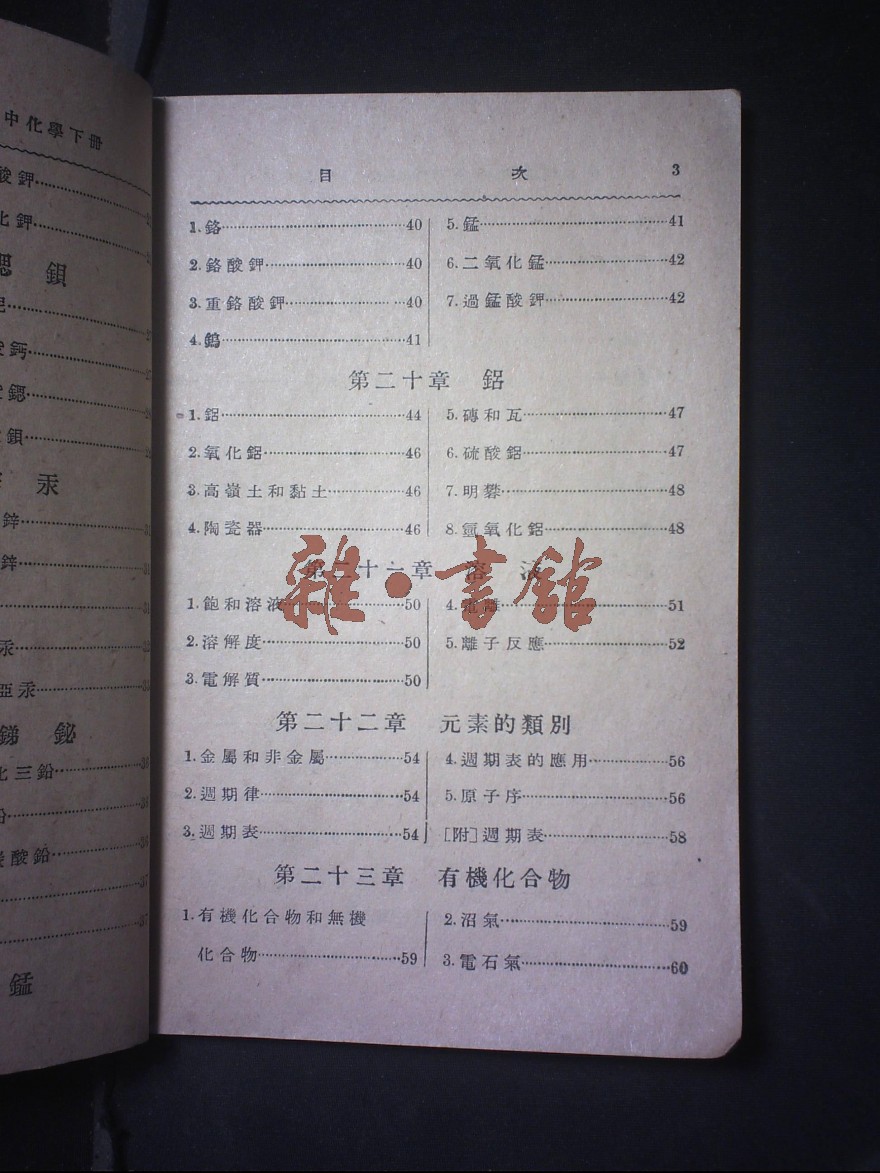 中化學下冊
酸鉀
化鉀
鍶 鋇
酸鈣
鍶
鋇
汞
鋅
鋅
汞
亞汞
銻 鉍
化三鉛
酸鉛
錳
目 次 3
1.鉻 40
2.鉻酸鉀 40
3.重鉻酸鉀 40
4.鎢 41
5.錳 41
6.二氧化錳 42
7.過錳酸鉀 42
第二十章 鋁
1.鋁 44
2.氧化鋁 46
3.高嶺土和黏土 46
4.陶瓷器 46
5.磚和瓦 47
6.硫酸鋁 47
7.明礬 48
8.氫氧化鋁 48
第二十一章 溶液
1.飽和溶液 50
2.溶解度 50
3.電解質 50
4.電離 51
5.離子反應 52
第二十二章 元素的類別
1.金屬和非金屬 54
2.週期律 54
3.週期表 54
4.週期表的應用 56
5.原子序 56
[附]週期表 58
第二十三章 有機化合物
1.有機化合物和無機
化合物 59
2.沼氣 59
3.電石氣 60
雜·書館